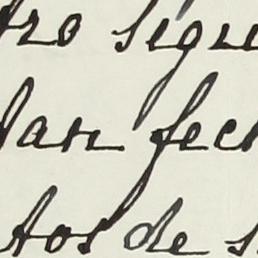 tro sigue
dan fech
tos de s